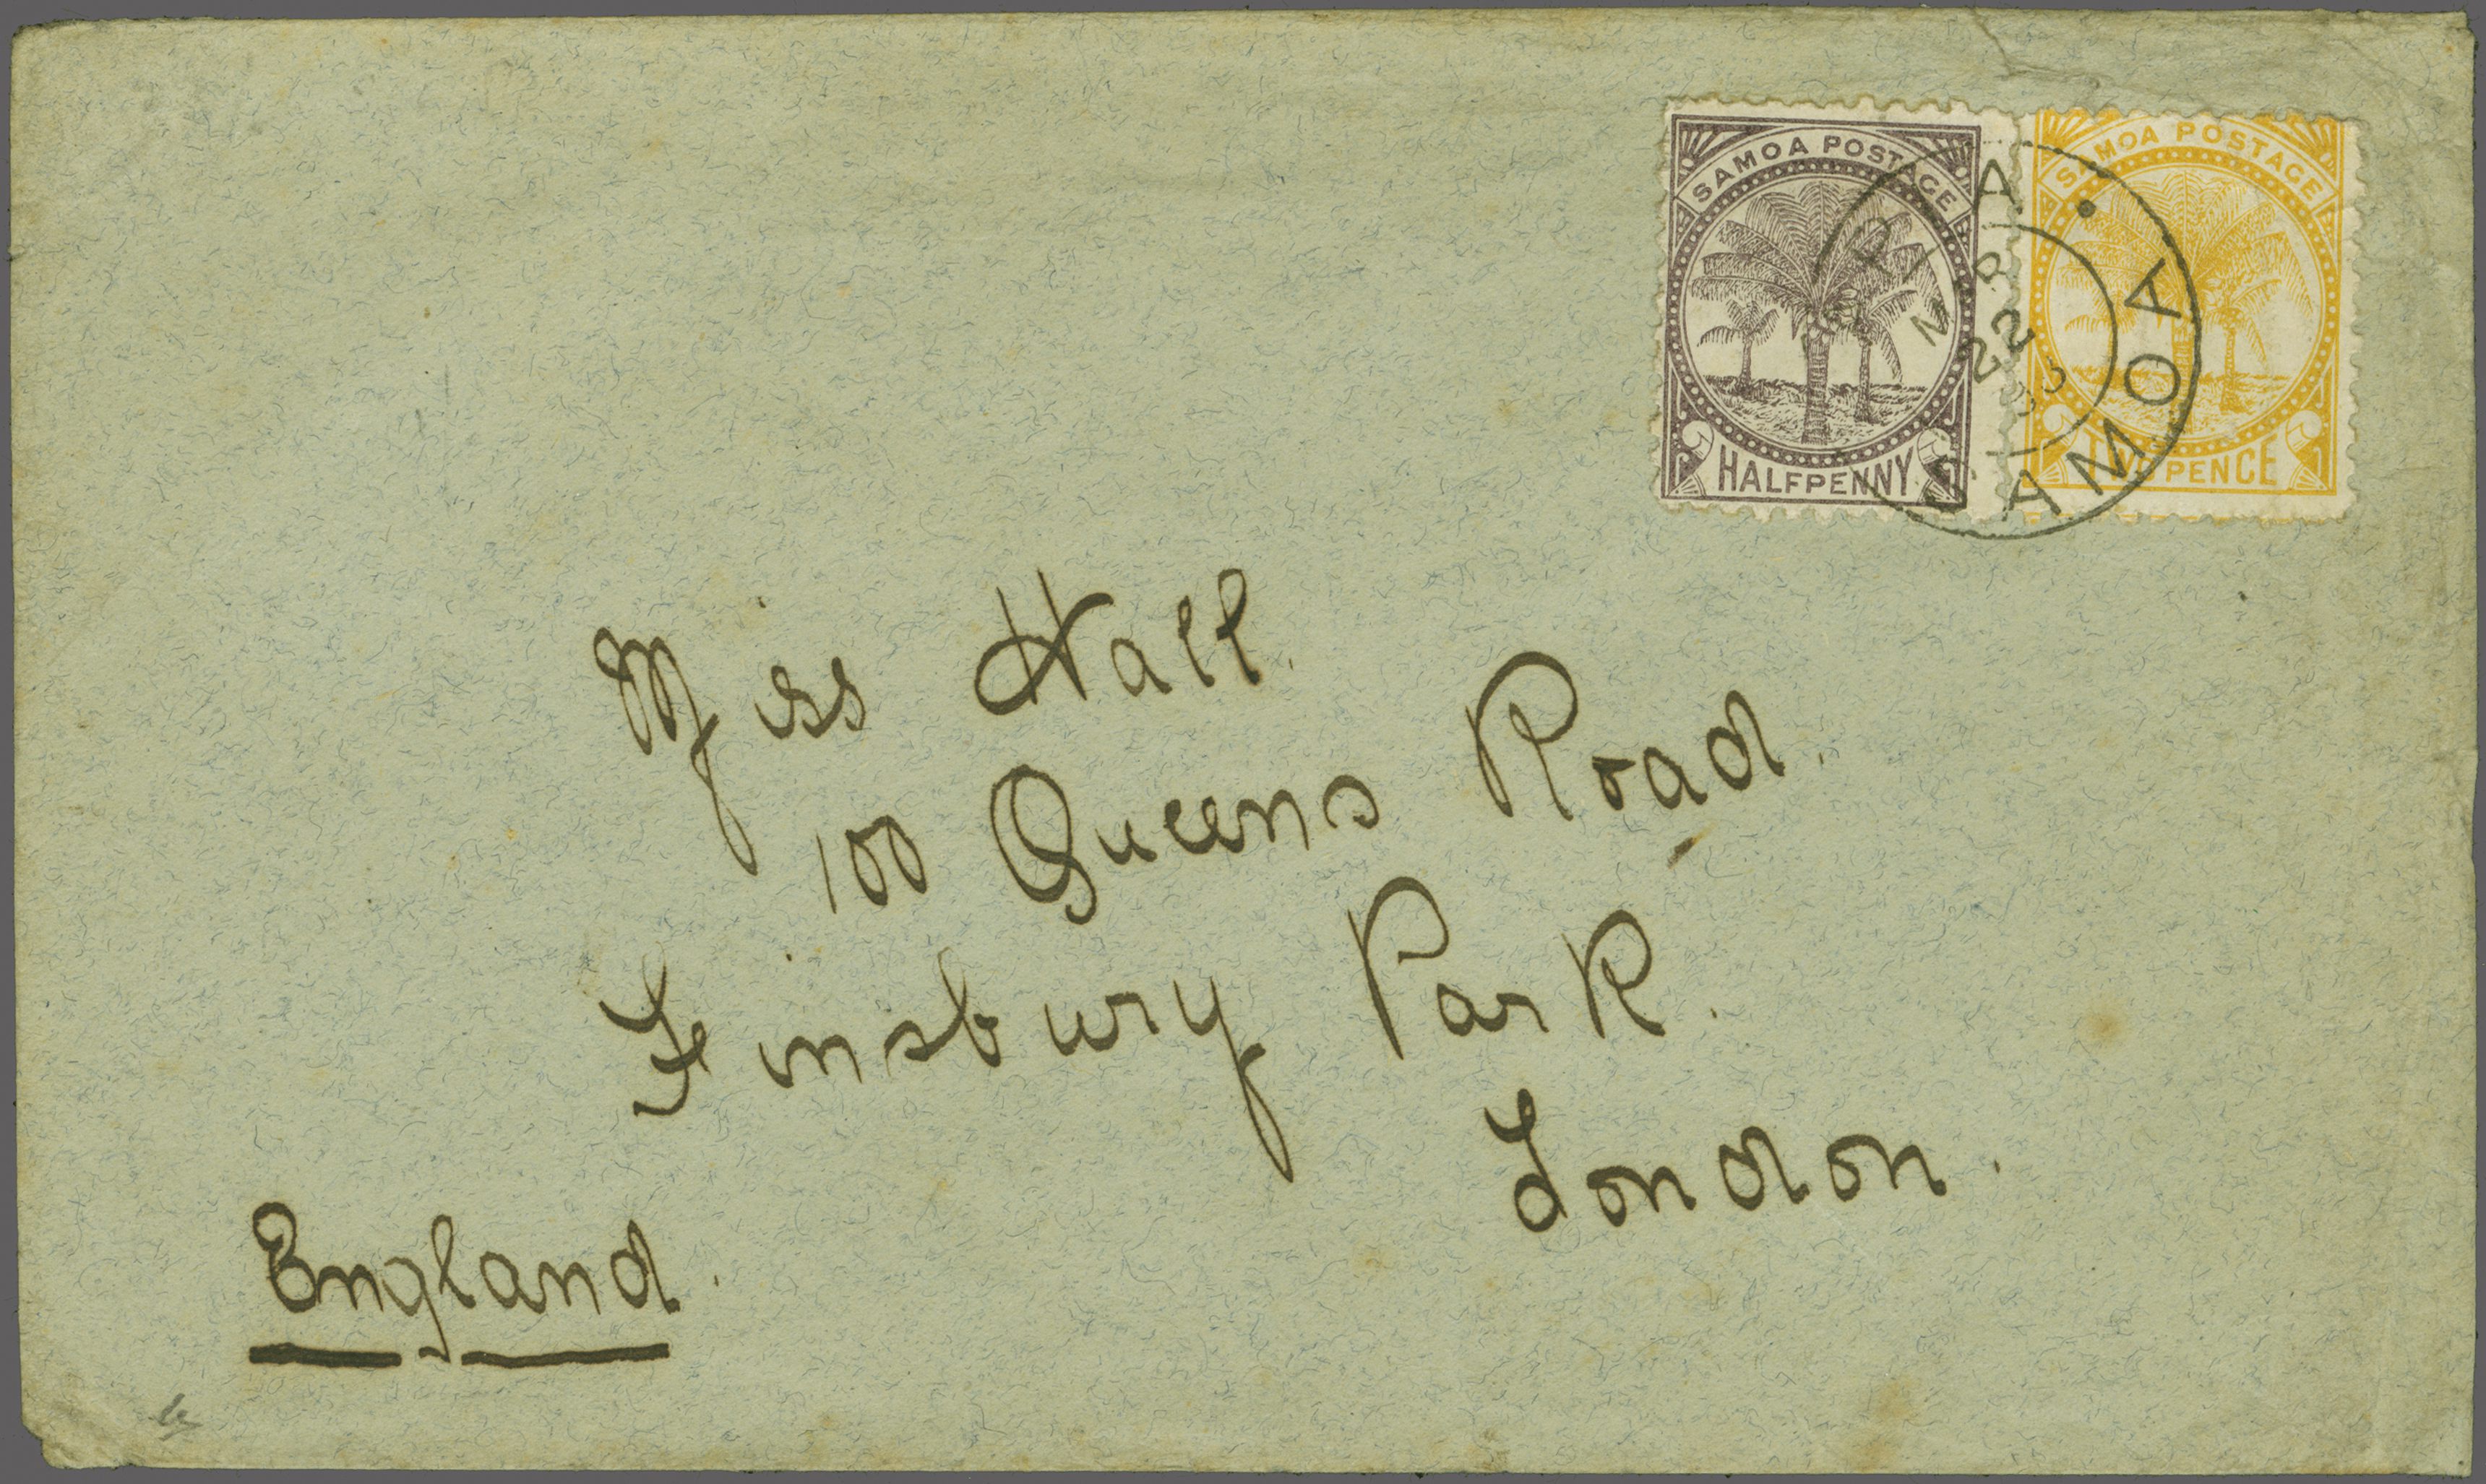 SAMOA POSTAGE
HALFPENNY
SAMOA POSTAGE
TWO PENCE
APIA
MR
22
93
SAMOA
Miss Hall.
100 Queens Road.
Finsbury Park.
London.
England.